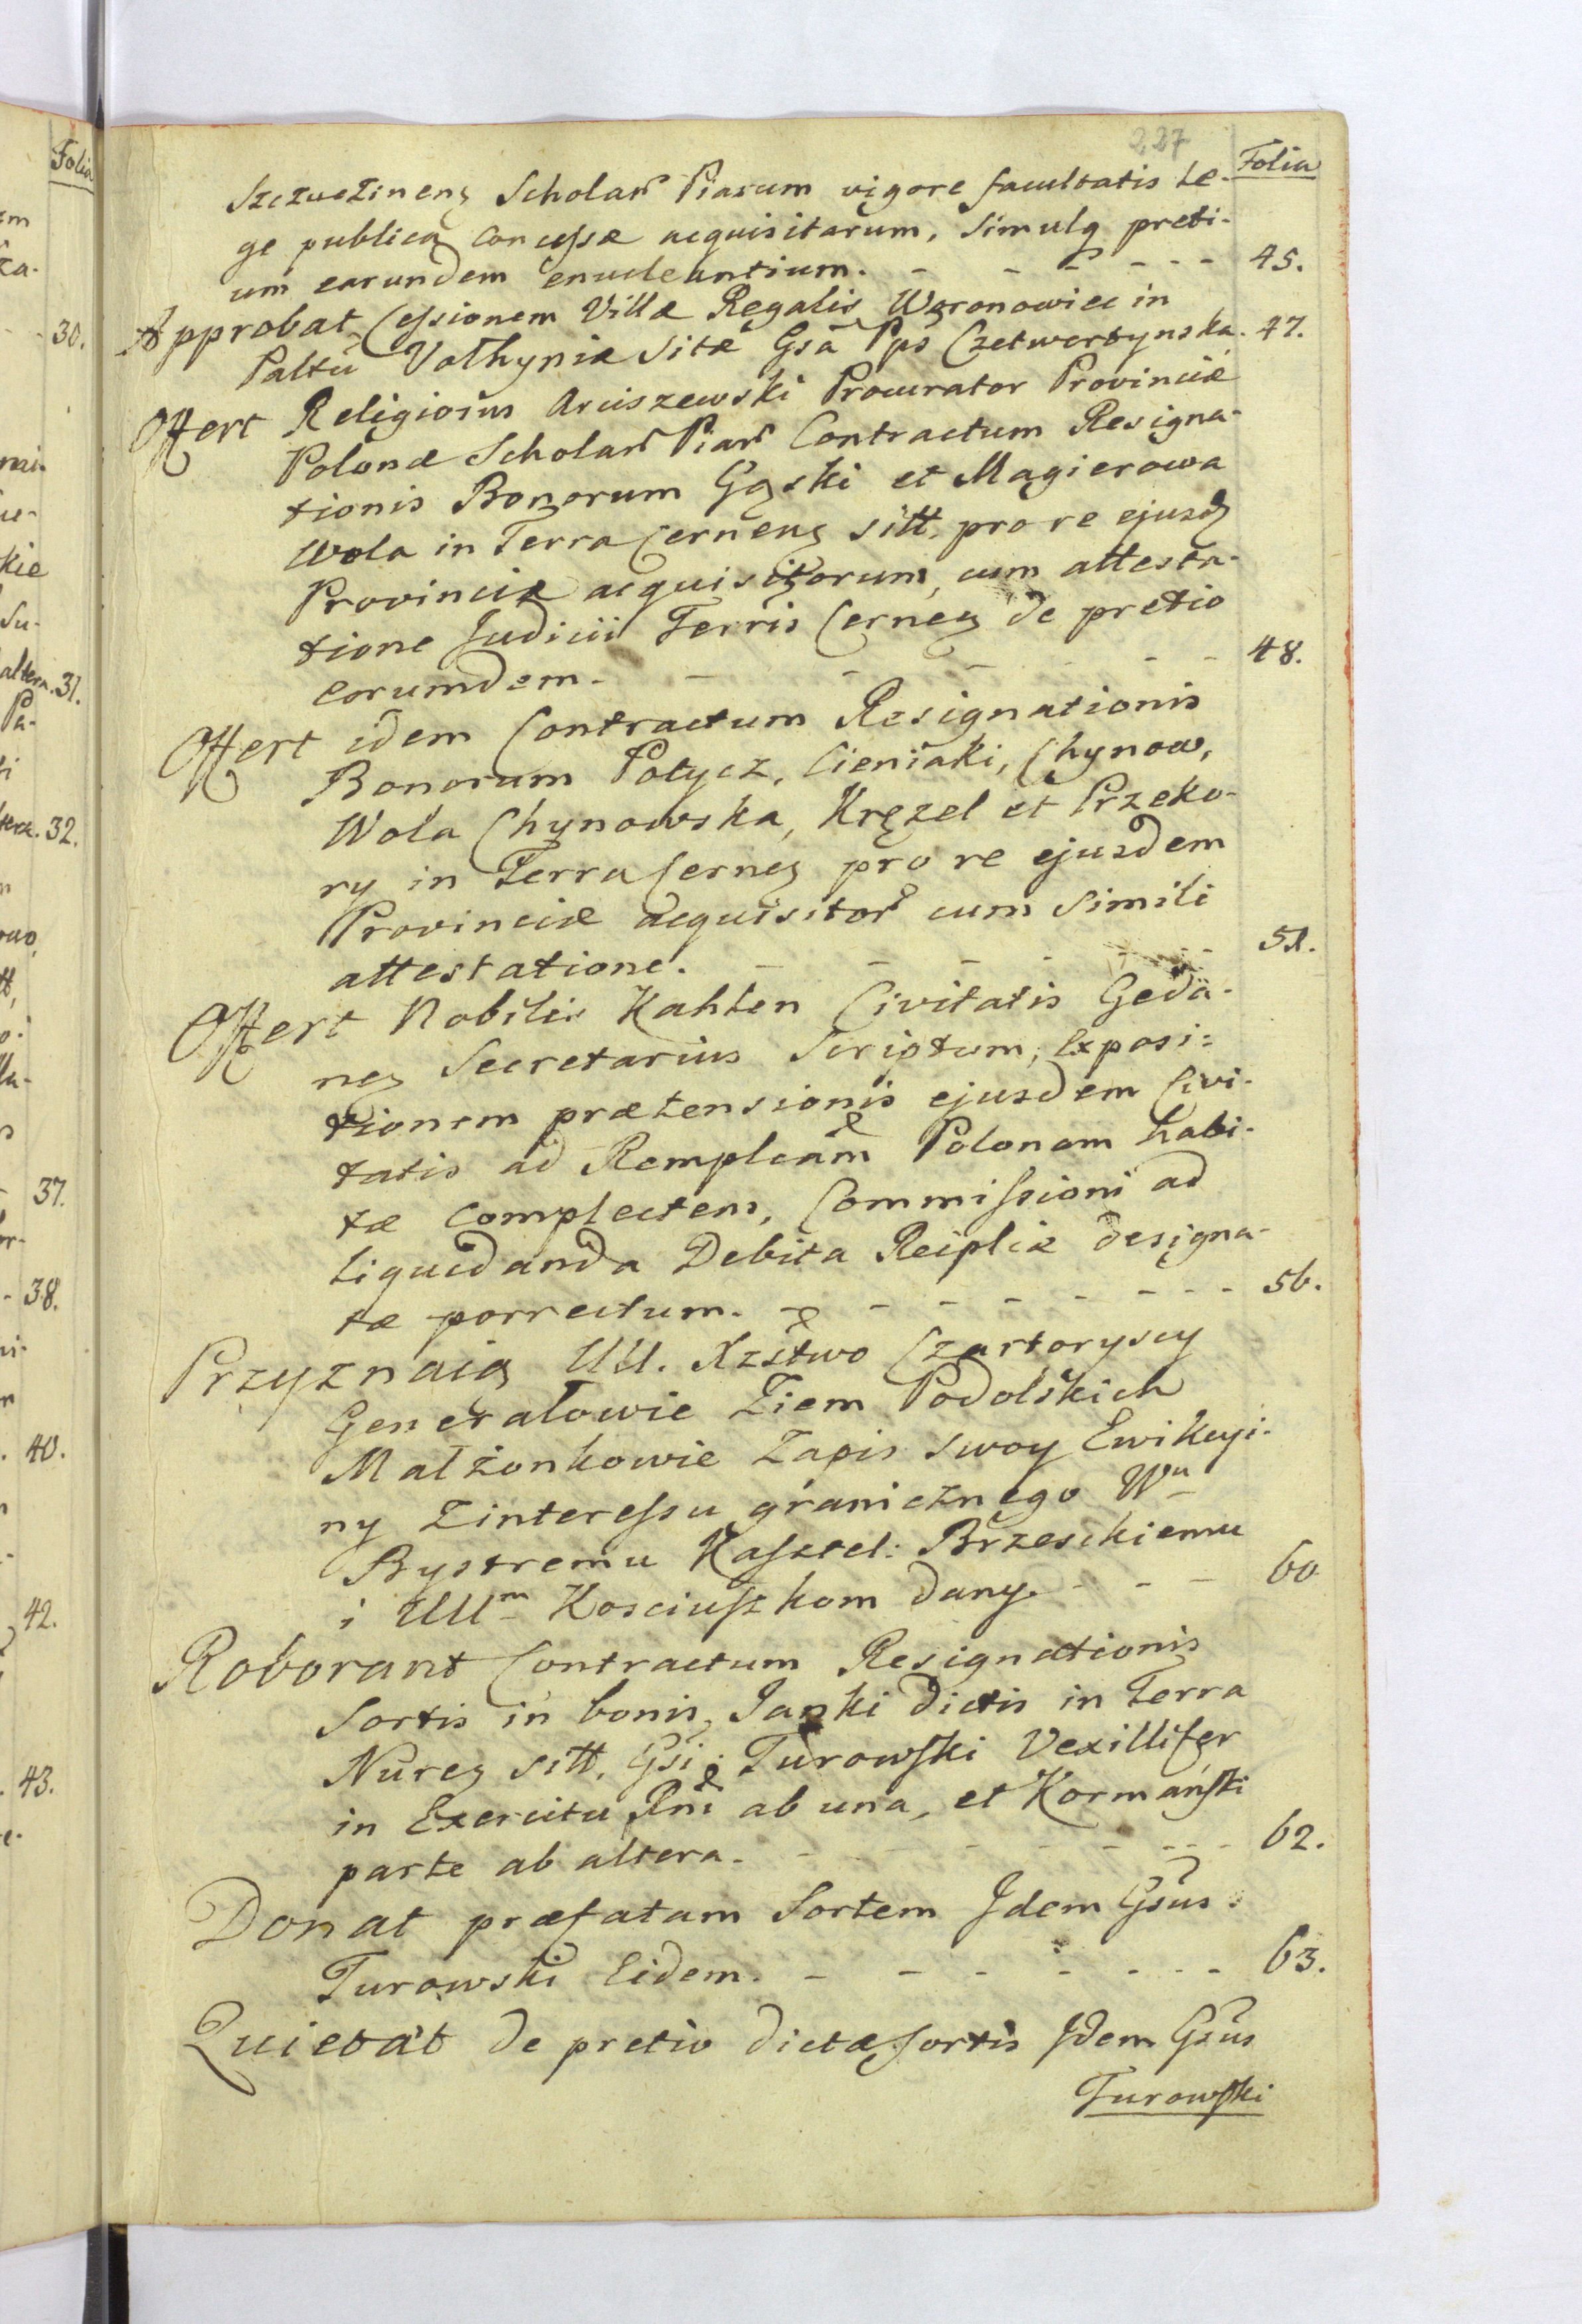 227
Folia
Szczuczinens Scholar Piarum vigore facultatis Le-
ge publica Concessæ acquisitarum, Simulq preti-
um earundem enucleantium. - - - - - - 45.
Approbat Cessionem Villæ Regalis Woronowiec in
Paltu Volhyniæ Sitæ Gsa Pps Czetwertynska. 47.
Offert Religiosus Arciszewski Procurator Provinciæ
Polonæ Scholar Piar Contractum Resigna-
tionis Bonorum Gąski et Magierowa
Wola in Terra Cernens sitt. pro re ejusd
Provinciæ acquisitorum, cum attesta-
tione Judicii Terris Cernen de pretio
eorumdem. - - - - - 48.
Offert idem Contractum Resignationis
Bonorum Potycz, Cieniaki, Chynow,
Wola Chynowska, Kręzel et Przeko-
ry in Terra Cernen pro re ejusdem
Provinciæ acquisitor cum Simili
attestatione. - - - - - - 51.
Offert Nobilis Kahlen Civitatis Geda-
nen Secretarius Scriptum, Exposi-
tionem prætensionis ejusdem Civi-
tatis ad Remplcam Polonam habi-
tæ Complectens, Commissioni ad
Liquidanda Debita Reiplcæ designa-
tæ porrectum. - - - - - - - - 56.
Przyznaią UU. Xzstwo Czartoryscy
Generałowie Ziem Podolskich
Małżonkowie Zapis swoy Ewikcyi-
ny Zinteressu granicznego Wu
Bystremu Kasztel: Brzeskiemu
i UUm Kosciuszkom dany. - - - 60
Roborant Contractum Resignationis
Sortis in bonis Janki dictis in Terra
Nuren sitt. Gsi: Turowski Vexillifer
in Exercitu Rni ab una, et Kormański
parte ab altera. - - - - - - - 62.
Donat præfatam Sortem Jdem Gsus:
Turowski Eidem. - - - - - - - 63.
Quietat de pretio dictæ sortis Jdem Gsus
Turowski